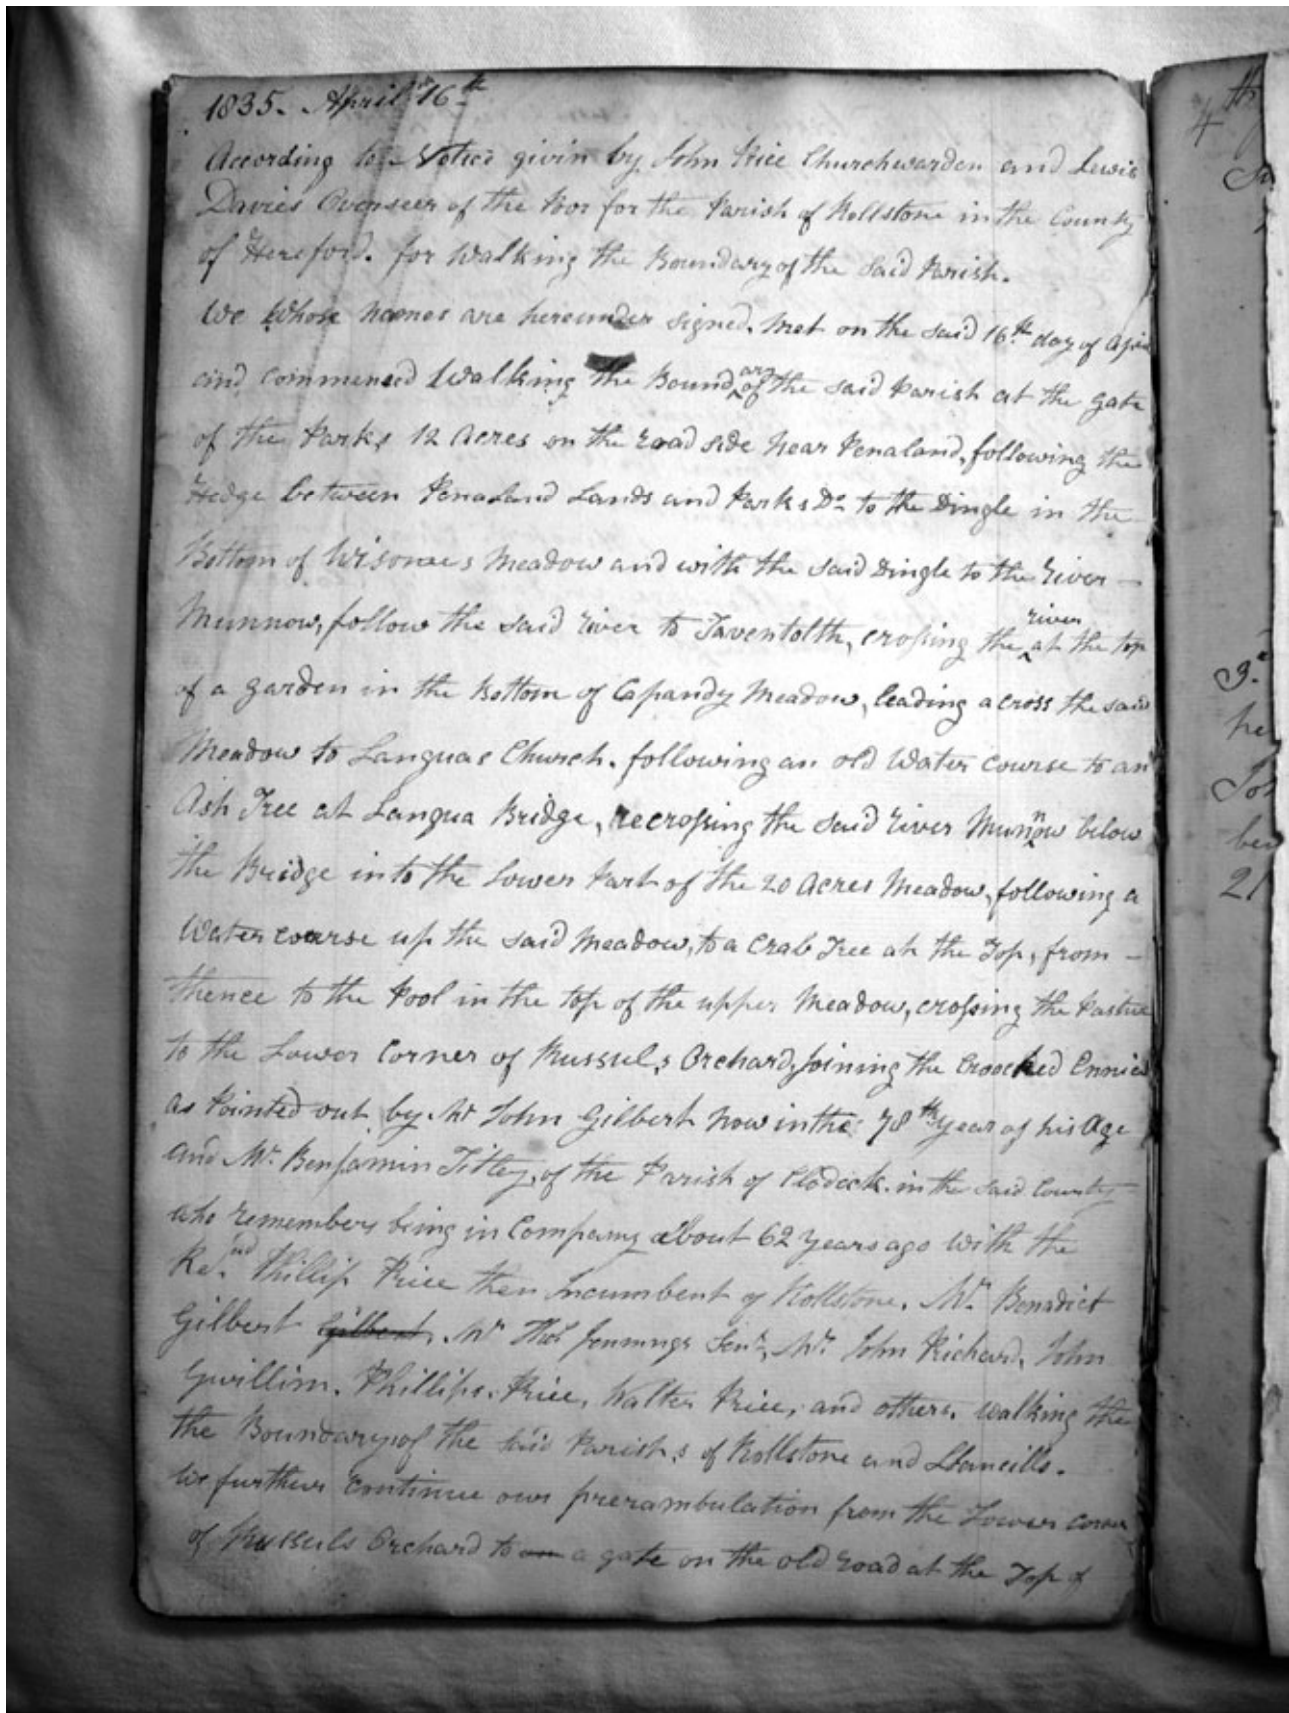 1835. April 16th
According to Notice givin by John Price Churchwarden and Lewis
Davies Overseer of the Poor for the Parish of Rollstone in the County
of Hereford. for Walking the Boundary of the said Parish.
We whose names are hereunder signed. Met on the said 16th day of April
and commenced Walking the Boundary of the said Parish at the gate
of the Parks 12 Acres on the road side Near Penaland, following the
Hedge between Penaland Lands and Parks Do to the Dingle in the
Bottom of Meadow and with the said Dingle to the River –
Munnow, follow the said River to Taventolth, croſsing the river at the top
of a garden in the Bottom of Capandy Meadow, leading across the said
Meadow to Languae Church. following an old Water course to an
Ash Tree at Langua Bridge, recroſsing the said River Munnow below
the Bridge into the Lower Part of the 20 Acres Meadow, following a
Water course up the said Meadow, to a Crab Tree at the Top, from –
thence to the Pool in the top of the upper Meadow, croſsing the Pasture
to the Lower Corner of Russul,s Orchard, Joining the Croocked
as Pointed out by Mr John Gilbert Now in the 78th year of his Age
and Mr. Benjamin Titley, of the Parish of Clodock. in the said County
who remembers being in Company about 62 Years ago with the
Revnd Phillip Price then Incumbent of Rollstone. Mr. Benadict
Gilbert Gilbert. Mr Thos Jennings Senr, Mr. John Prichard, John
Gwillim. Phillips. Price, Walter Price, and others. walking the
the Boundary of the said Parish,s of Rollstone and Llancillo.
We further continue our prerambulation from the Lower corner
of Russuls Orchard to an a gate on the old road at the Top of
4 th
9.
he
21